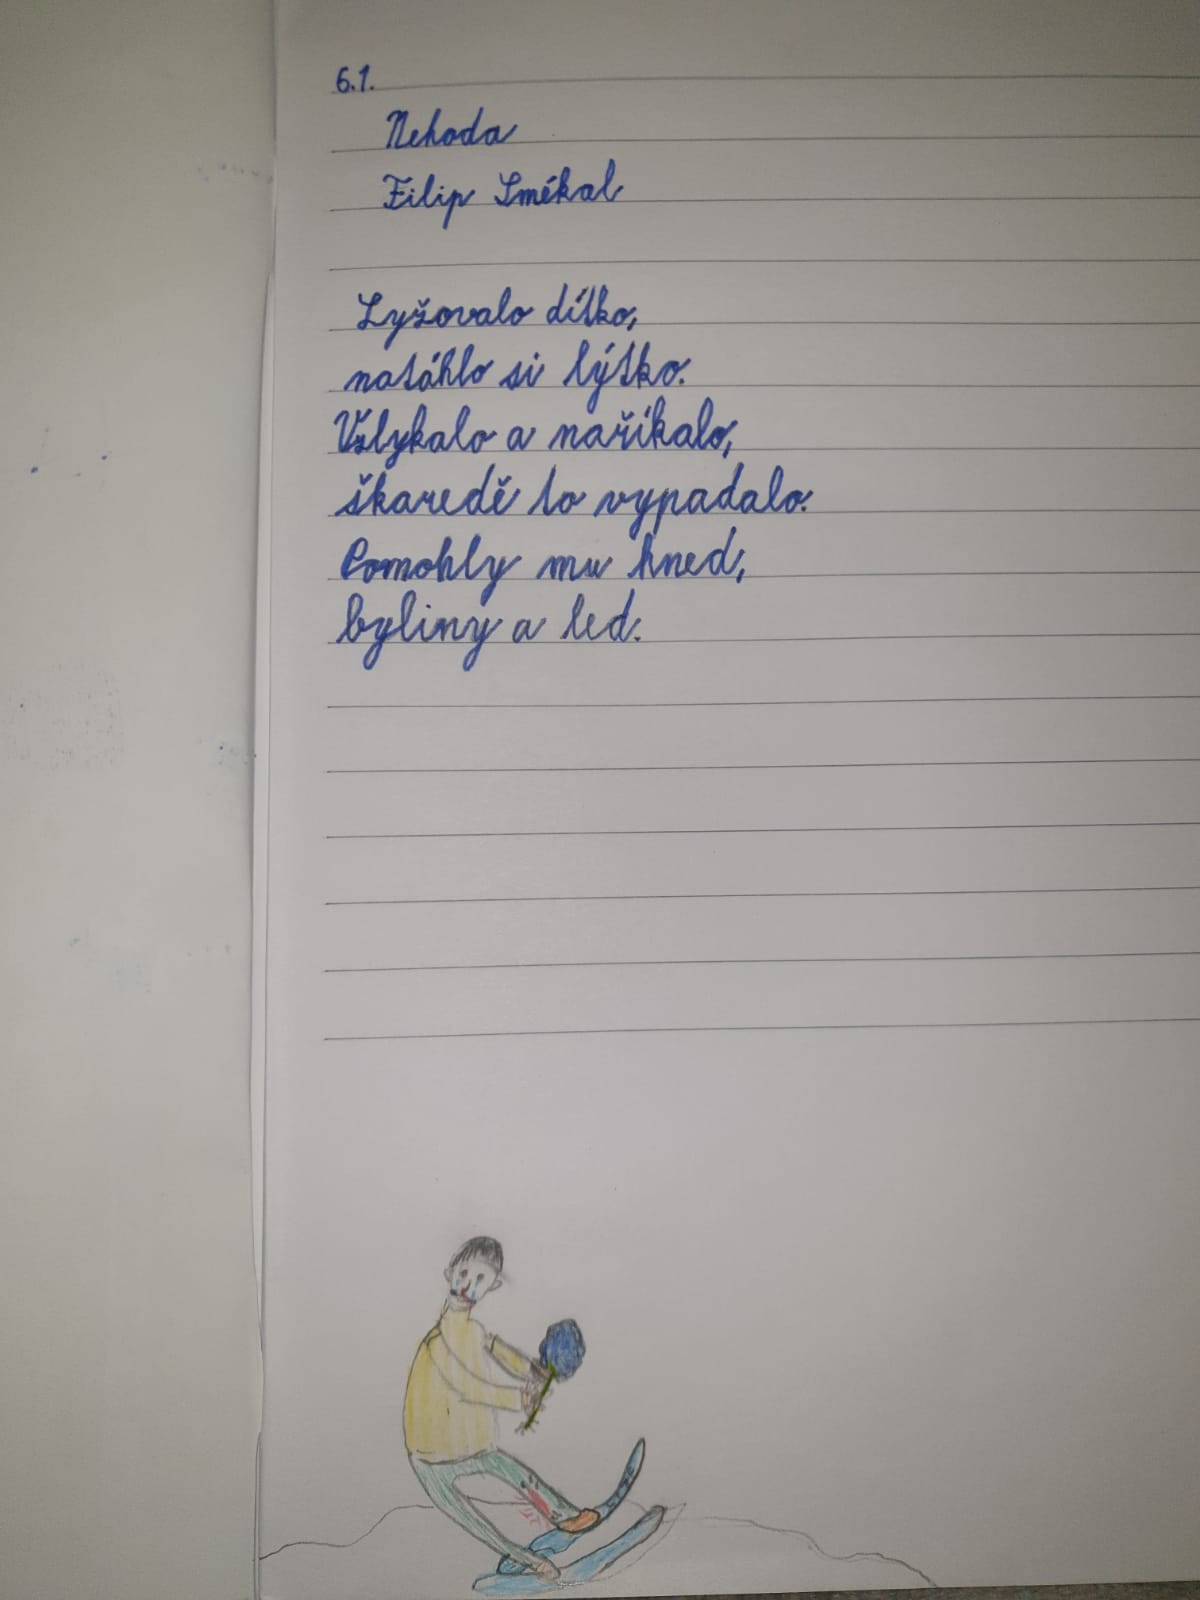 6.1.
Nehoda
Filip Smékal
Lyžovalo dítko,
natáhlo si lýtko.
Vzlykalo a naříkalo,
škaredě to vypadalo.
Pomohly mu hned,
byliny a led.